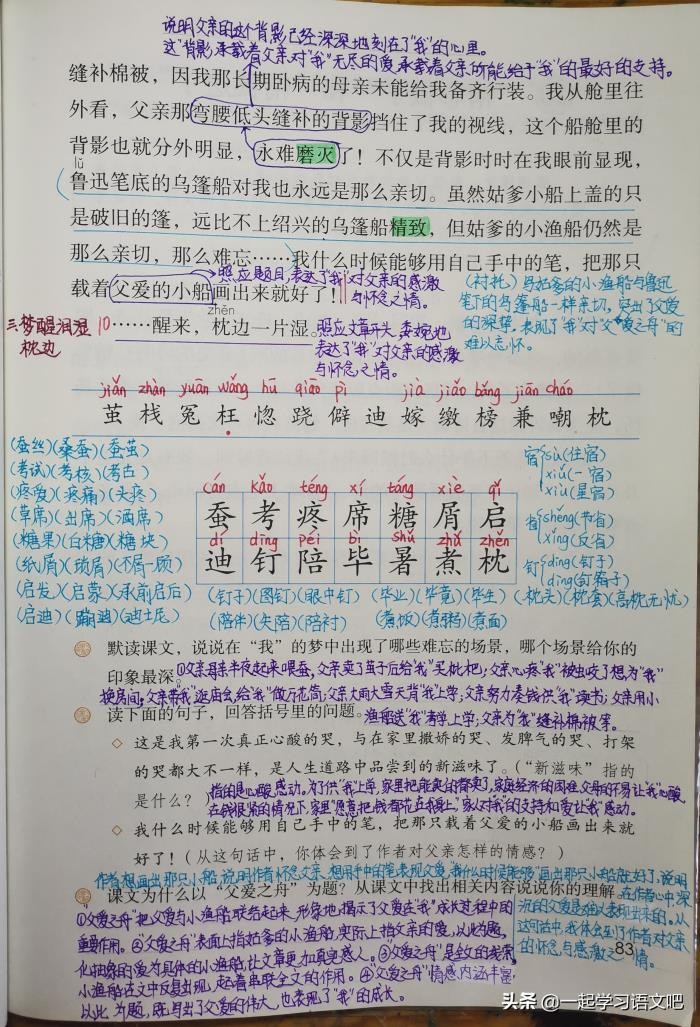 说明父亲的这个背影已经深深地刻在了"我"的心里。
这"背影"承载着父亲对"我"无尽的爱,承载着父亲所能给予"我"的最好的支持。
缝补棉被,因我那长期卧病的母亲未能给我备齐行装。我从舱里往
外看,父亲那弯腰低头缝补的背影挡住了我的视线,这个船舱里的
背影也就分外明显,永难磨灭了!不仅是背影时时在我眼前显现,
lǔ
鲁迅笔底的乌篷船对我也永远是那么亲切。虽然姑爹小船上盖的只
是破旧的篷,远比不上绍兴的乌篷船精致,但姑爹的小渔船仍然是
那么亲切,那么难忘……我什么时候能够用自己手中的笔,把那只
载着父爱的小船画出来就好了!
照应题目,表达了"我"对父亲的感激
与怀念之情。
(衬托)写姑爹的小渔船与鲁迅
笔下的乌篷船一样亲切,突出了父爱
的深挚,表现了"我"对"父爱之舟"的
难以忘怀。
三梦醒泪湿
枕边
zhěn
10……醒来,枕边一片湿。
照应文章开头,委婉地
表达了"我"对父亲的感激
与怀念之情。
jiǎn zhàn yuān wǎng hū qiāo pì jià jiǎo bǎng jiān cháo
茧 栈 冤 枉 惚 跷 僻 迪 嫁 缴 榜 兼 嘲 枕
(蚕丝)(桑蚕)(蚕茧)
(考试)(考核)(考古)
(疼爱)(疼痛)(头疼)
(草席)(出席)(酒席)
(糖果)(白糖)(糖块)
(纸屑)(琐屑)(不屑一顾)
(启发)(启蒙)(承前启后)
(启迪)(蹦迪)(迪士尼)
cán kǎo téng xí táng xiè qǐ
蚕 考 疼 席 糖 屑 启
dí dīng péi bì shǔ zhǔ zhěn
迪 钉 陪 毕 暑 煮 枕
宿 sù(住宿)
xiǔ(一宿)
xiù(星宿)
省 shěng(节省)
xǐng(反省)
钉 dīng(钉子)
dìng(钉箱子)
(钉子)(图钉)(眼中钉) (毕业)(毕竟)(毕生) (枕头)(枕套)(高枕无忧)
(陪伴)(失陪)(陪衬) (煮饭)(煮粥)(煮面)
默读课文,说说在"我"的梦中出现了哪些难忘的场景,哪个场景给你的
印象最深。
①父亲母亲半夜起来喂蚕,父亲卖了茧子后给"我"买枇杷;父亲心疼"我"被虫咬了想为"我"
换房间;父亲带"我"逛庙会,给"我"做万花筒;父亲大雨大雪天背"我"上学;父亲努力凑钱供"我"读书;父亲用小
渔船送"我"考学、上学;父亲为"我"缝补棉被等。
读下面的句子,回答括号里的问题。
◇ 这是我第一次真正心酸的哭,与在家里撒娇的哭、发脾气的哭、打架
的哭都大不一样,是人生道路中品尝到的新滋味了。("新滋味"指的
是什么?)
指的是心酸、感动。为了供"我"上学,家里把能卖的都卖了,家庭经济的困难、父母的不易让"我"心酸,
在钱很紧的情况下,家里"愿意把钱都花在我身上",家人对"我"的支持和爱让"我"感动。
◇ 我什么时候能够用自己手中的笔,把那只载着父爱的小船画出来就
好了!(从这句话中,你体会到了作者对父亲怎样的情感?)
作者想画出那只小船,说明作者怀念父亲,想用手中的笔表现父爱。"我什么时候能够"画出那只小船就好了,说明
在作者心中深
沉的父爱是难以表现出来的。从
这句话中,我体会到了作者对父亲
的怀念与感激之情。
课文为什么以"父爱之舟"为题?从课文中找出相关内容说说你的理解。
①"父爱之舟"把父爱与小渔船联结起来,形象地揭示了父爱在"我"成长过程中的
重要作用。②"父爱之舟"表面上指姑爹的小渔船,实际上指父亲的爱,以此为题,
化抽象的爱为具体的小渔船,让文章更加真实感人。③"父爱之舟"是全文的线索,
小渔船在文中反复出现,起着串联全文的作用。④"父爱之舟"情感内涵丰富,
以此为题,既写出了父爱的伟大,也表现了"我"的成长。
83
头条 @一起学习语文吧